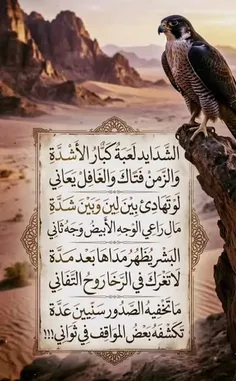 الشَّدَايد لَعبَة كبَّار الأشدَّة
وَالزّمَنْ فَتَّاك وَالغَافِل يعَاني
لَوْ تهَادىٰ بين لين وبَين شَدَّة
مَا لـ رَاعي الوَجه الأبيضْ وَجهْ ثَاني
البَشر يظْهر مَدَاهَا بَعد مَدّة
لَا تغرّكْ في الرّخَا روحْ التّفَاني
مَا تخفيهْ الصّدُور سنيين عَدَّة
تكشفهْ بَعضْ الموَاقفْ في ثوَاني!!!